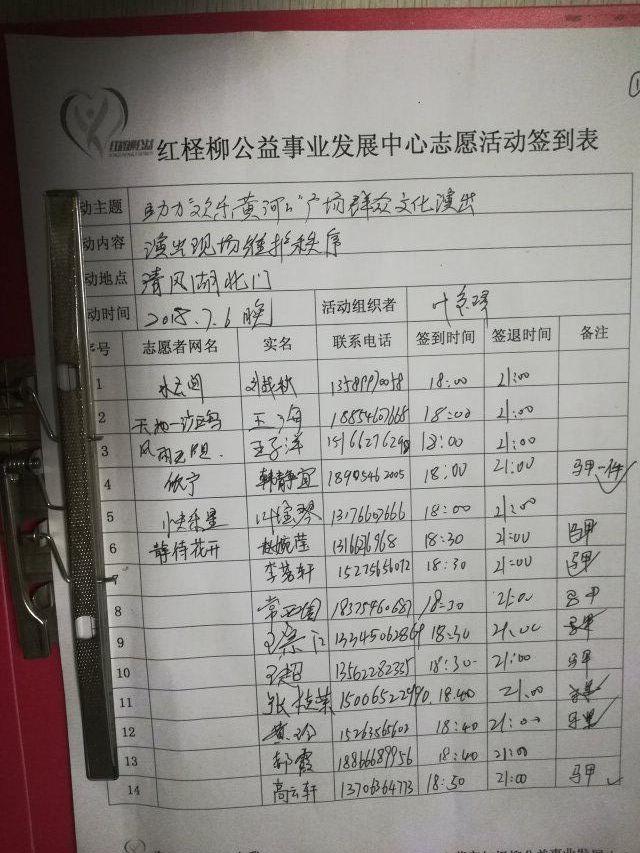 红柽柳公益事业发展中心志愿活动签到表
动主题 助力"欢乐黄河口"广场群众文化演出
动内容 演出现场维护秩序
动地点 清风湖北门
动时间 2018.7.6 晚 活动组织者
序号 志愿者网名 实名 联系电话 签到时间 签退时间 备注
1 水云间 18:00 21:00
2 王海 18854607668 18:00 21:00
3 王子洋 18:00 21:00
4 欣宁 韩静宜 18905462005 18:00 21:00 马甲一件
5 13176607666 18:00 21:00
6 静待花开 18:30 21:00 马甲
7 李茗轩 15275656012 18:30 21:00 马甲
8 常西国 18:30 21:00 马甲
9 18:30 21:00 马甲
10 王超 13562282335 18:30 21:00 马甲
11 张桂荣 15006522490 18:40 21:00 马甲
12 黄玲 15263865602 18:40 21:00 马甲
13 郝霞 18866689956 18:40 21:00
14 高云轩 13706364773 18:50 21:00 马甲